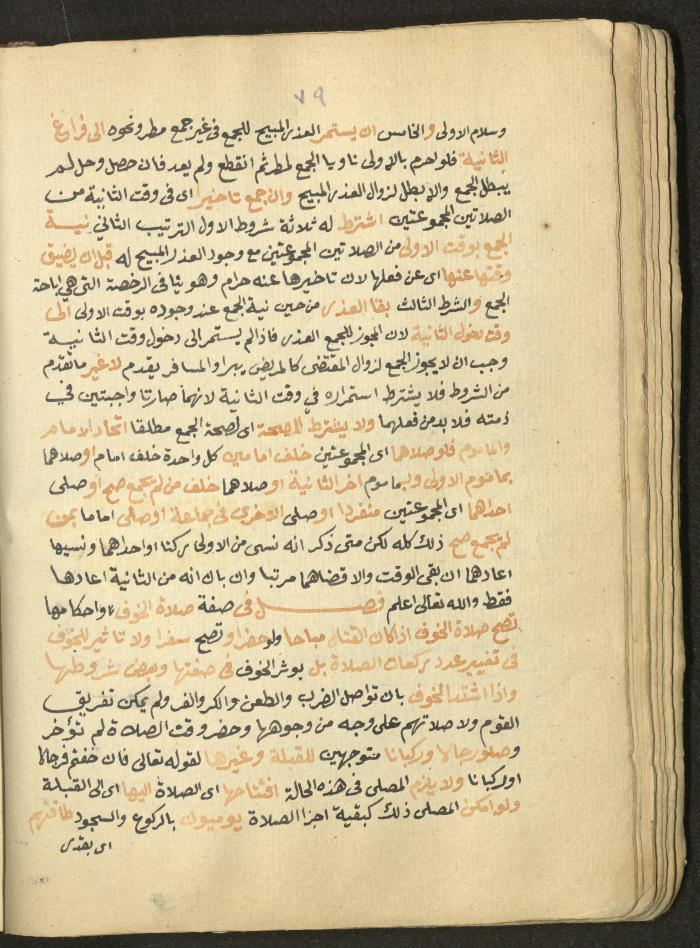 ٧٩
وسلام الاولى والخامس ان يستمر العذر المبيح للجمع في غير جمع مطر ونحوه الى فراغ
الثانية فلو احرم بالاولى ناويا الجمع لمطر ثم انقطع ولم يعد فان حصل وحل لم
يبطل الجمع والا بطل لزوال العذر المبيح وان جمع تاخيرا اى في وقت الثانية من
الصلاتين المجموعتين اشترط له ثلاثة شروط الاول الترتيب الثاني نية
الجمع بوقت الاولى من الصلاتين المجموعتين مع وجود العذر المبيح له قبل ان يضيق
وقتها عنها اى عن فعلها لان تاخيرها عنه حرام وهو ينافي الرخصة التي هي اباحة
الجمع والشرط الثالث بقا العذر من حين نية الجمع عند وجوده بوقت الاولى الى
وقت دخول الثانية لان المجوز للجمع العذر فاذا لم يستمر الى دخول وقت الثانية
وجب ان لا يجوز الجمع لزوال المقتضى كالمريض يبرا والمسافر يقدم لا غير ما تقدم
من الشروط فلا يشترط استمراره في وقت الثانية لانهما صارتا واجبتين في
ذمته فلا بد من فعلهما ولا يشترط للصحة اى لصحة الجمع مطلقا اتحاد الامام
والماموم فلو صلاهما اى المجموعتين خلف امامين كل واحدة خلف امام او صلاهما
بماموم الاولى وبماموم اخر الثانية او صلاهما خلف من لم يجمع صح او صلى
احداهما اى المجموعتين منفردا او صلى الاخرى في جماعة او صلى اماما بمن
لم يجمع صح ذلك كله لكن متى ذكر انه نسى من الاولى ركنا او احداهما ونسيها
اعادهما ان بقى الوقت والا قضاهما مرتبا وان بان انه من الثانية اعادها
فقط والله تعالى اعلم فصل في صفة صلاة الخوف واحكامها
تصح صلاة الخوف اذا كان القتال مباحا ولو حضرا وتصح سفرا ولا تاثير للخوف
في تغيير عدد ركعات الصلاة بل يوثر الخوف في صفتها وبعض شروطها
واذا اشتد الخوف بان تواصل الضرب والطعن والكر والفر ولم يمكن تفريق
القوم ولا صلاتهم على وجه من وجوهها وحضر وقت الصلاة لم تؤخر
وصلو رجالا وركبانا متوجهين للقبلة وغيرها لقوله تعالى فان خفتم فرجالا
او ركبانا ولا يلزم المصلى في هذه الحالة افتتاحها اى الصلاة اليها اى الى القبلة
ولو امكن المصلى ذلك كبقية اجزا الصلاة يوميون بالركوع والسجود طاقتهم
اى بقدر